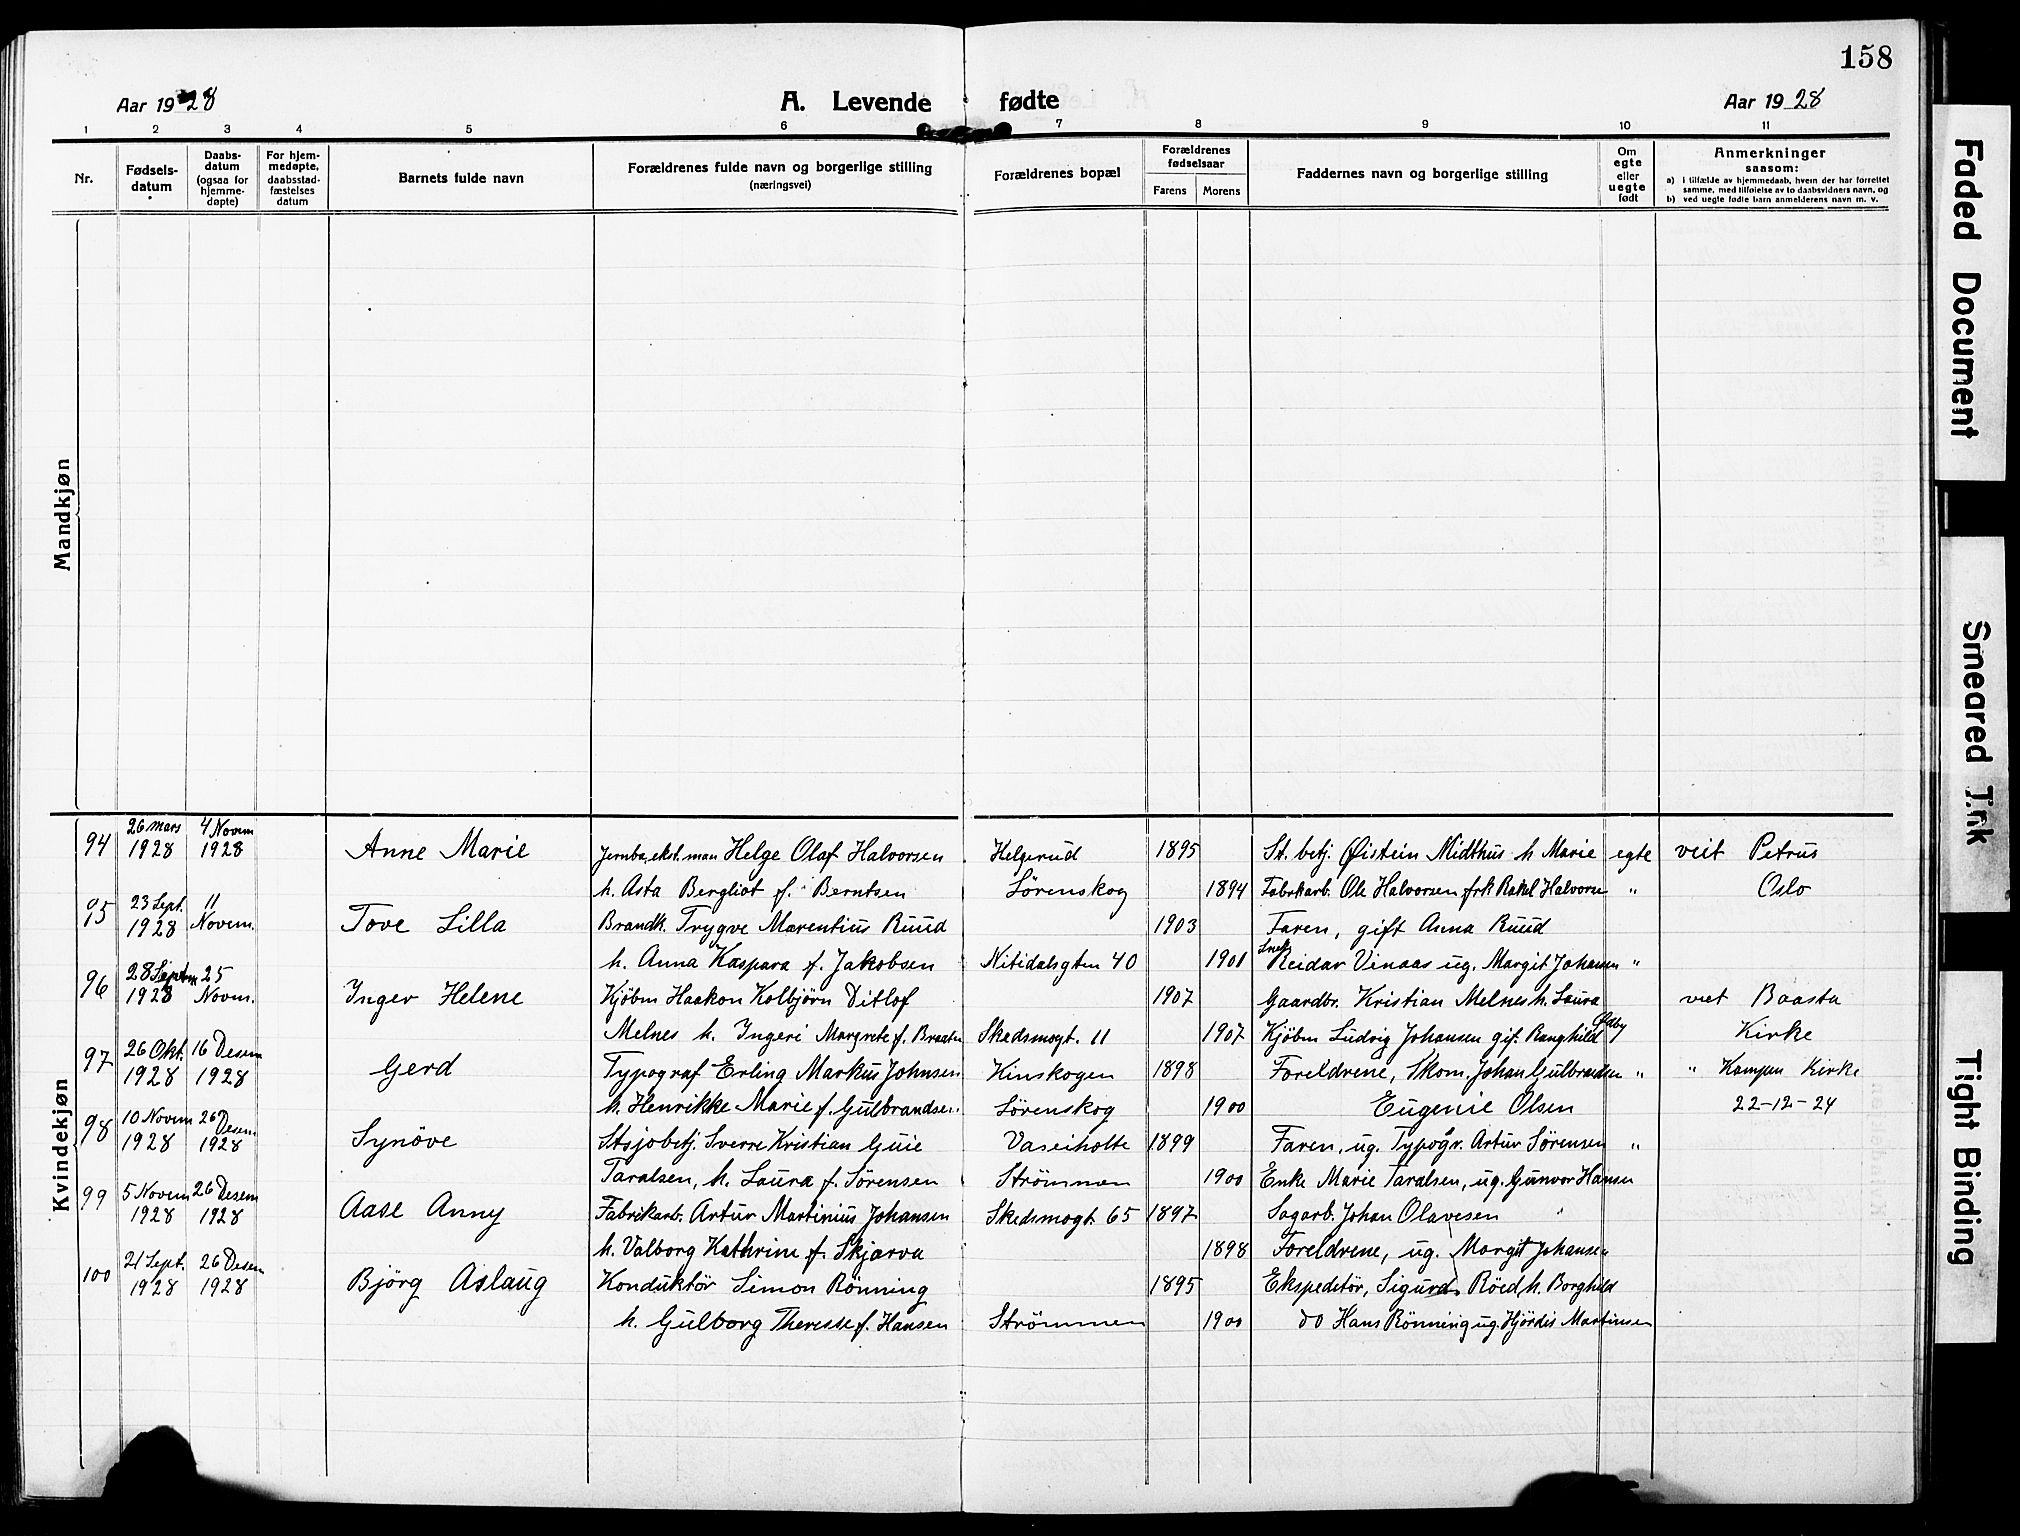 158
Aar 1928 A. Levende fødte Aar 1928
1 2 3 4 5 6 7 8 9 10 11
Nr.
Fødsels-
datum
Daabs-
datum
(ogsaa for
hjemme-
døpte)
For hjem-
medøpte,
daabsstad-
fæstelses
datum
Barnets fulde navn
Forældrenes fulde navn og borgerlige stilling
(næringsvei)
Forældrenes bopæl
Forældrenes
fødselsaar
Farens Morens
Faddernes navn og borgerlige stilling
Om
egte
eller
uegte
født
Anmerkninger
saasom:
a) i tilfælde av hjemmedaab, hvem der har forrettet
samme, med tilføielse av to daabsvidners navn, og
b) ved uegte fødte barn anmelderens navn m. v.
Mandkjøn
Kvindekjøn
26 mars 4 Novem
94 1928 1928 Anne Marie Jernba.ekst.man Helge Olaf Halvorsen Helgerud 1895 St. betj. Øistein Midthus h Marie egte viet Petrus
h. Asta Bergliot f. Berntsen Sörenskog 1894 Fabrkarb. Ole Halvorsen frk Rakel Halvorsn " Oslo
23 Sept. 11
95 1928 Novem. Tove Lilla Brandk. Trygve Marentius Ruud 1903 Faren, gift Anna Ruud
h. Anna Kaspara f. Jakobsen Nitidalsgten 40 1901 Snek Reidar Vinaas ug. Margit Johansen "
28 Septem 25
96 1928 Novm. Inger Helene Kjöbm Haakon Kolbjörn Ditlof 1907 Gaardbr. Kristian Melnes h. Laura viet Baasta
Melnes h. Ingeri Margrete f. Braaten Skedsmogt. 11 1907 Kjöbm Ludvig Johansen gif. Ranghild Ødby Kirke
26 Okt. 16 Desem
97 1928 1928 Gerd Typograf Erling Markus Johnsen Kinskogen 1898 Foreldrene, Skom. Johan Gulbrandsen " " Kampen Kirke
h. Henrikke Marie f. Gulbrandsen. Sörenskog 1900 Eugenie Olsen 22-12-24
10 Novem 26 Desem
98 1928 1928 Synöve Stsjobetj. Sverre Kristian Guie Vaseiholte 1899 Faren, ug. Typogr. Artur Sörensen "
Taralsen, h. Laura f. Sörensen Strömmen 1900 Enke Marie Taralsen, ug. Gunvor Hansen
5 Novem 26 Desem
99 1928 1928 Aase Anny Fabrikarb. Artur Martinius Johansen Skedsmogt. 65 1897 Sagarb. Johan Olavesen "
h. Valborg Kathrine f. Skjærva 1898 Foreldrene, ug. Margit Johansen
21 Sept. 26 Desem
100 1928 1928 Björg Aslaug Konduktör Simon Rönning 1895 Ekspeditör, Sigurd Röed, h. Borghild
h. Gulborg Theresse f. Hansen Strömmen 1900 do Hans Rönning ug. Hjördis Martinsen
Faded Document
Smeared Ink
Tight Binding